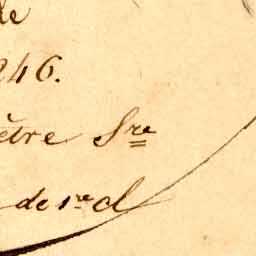 de
246.
être Sre
de 1re cl